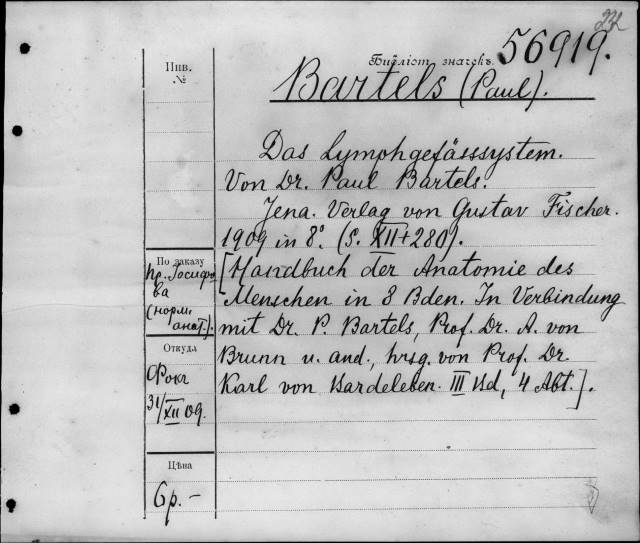 232
Библіот. значекъ 56919.
Bartels (Paul).
Инв.
№
Das Lymphgefässsystem.
Von Dr. Paul Bartels.
Jena. Verlag von Gustav Fischer.
1909 in 8°. (S. XII+280).
[Handbuch der Anatomie des
Menschen in 8 Bden. In Verbindung
mit Dr. P. Bartels, Prof. Dr. A. von
Brunn u. and., hrsg. von Prof. Dr.
Karl von Bardeleben. III Bd, 4 Abt.].
По заказу
пр. Іосифо
ва
(норм.
анат.)
Откуда
Фокъ
31/XII 09.
Цѣна
6р.-